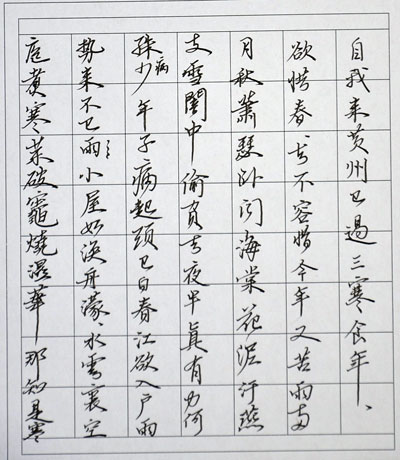 自我来黄州已過三寒食年、
欲惜春、去不容惜今年又苦雨兩
月秋蕭瑟卧闻海棠花泥汙燕
支雪闇中偷負去夜半真有力何
殊少病年子病起頭已白春江欲入户雨
势来不已雨〻小屋如漁舟濛〻水雲裏空
庖煮寒菜破竈燒濕葦那知是寒